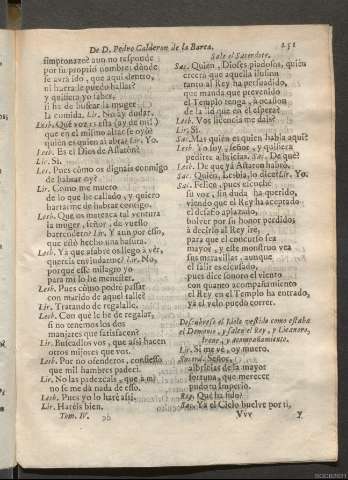 De D. Pedro Calderon de la Barca.
251
simplonazo? aun no responde
por su proprio nombre: dònde
se avrà ido, que aqui dentro,
ni fuera le puedo hallar?
y quisiera yo saber,
si ha de buscar la muger
la comida. Lir. No ay dudar.
Lesb. Què voz es esta (ay de mi!)
que en el mismo altar se oye?
quien es quien al altar Lir. Yo.
Lesb. Es el Dios de Astaròt?
Lir. Si.
Les. Pues còmo os dignais conmigo
de hablar oy?
Lir. Como me muero
de lo que he callado, y quiero
hartarme de hablar contigo.
Lesb. Que os merezca tal ventura
la muger, señor, de vuestro
barrendero? Lir. Y aun por esso,
que estò hecho una basura.
Lesb. Ya que afable os llego à vèr,
quereis enviudarme? Lir. No,
porque esse milagro yo
para mi lo he menester.
Lesb. Pues còmo podrè passar
con marido de aquel talle?
Lir. Tratando de regalalle.
Lesb. Con què le he de regalar,
si no tenemos los dos
manjares que satisfacen?
Lir. Buscadlos vos, que assi hacen
otros mijores que vos.
Lesb. Por no ofenderos, confiesso
que mil hambres padecì.
Lir. No las padezcais, que à mì
no se me dà nada de esso.
Lesb. Pues yo lo harè assi.
Lir. Harèis bien.
Tom. IV.
Sale el Sacerdote.
Sac. Quien, Dioses piadosos, quien
creerà que aquella ilusion
tanto al Rey ha persuadido,
que manda que prevenido
el Templo tenga, à ocasion
de la luz que en èl espera?
Lesb. Vos licencia me dais?
Lir. Si.
Sac. Mas quien es quien habla aqui?
Lesb. Yo soy, señor, y quisiera
pediros albricias. Sac. De què?
Lesb. De que yà Astaròt hablò.
Sac. Quien, Lesbia, lo dice? Lir. Yo.
Sac. Felice, pues escuchè
su voz, sin duda ha querido,
viendo que el Rey ha aceptado
el desafio aplazado,
bolver por su honor perdido,
à decirlo al Rey irè,
para que el concurso sea
mayor, y este monstruo vea
sus maravillas, aunque
el salir es escusado,
pues dice sonoro el viento
con quanto acompañamiento
el Rey en el Templo ha entrado,
yà el velo puedo correr.
Descubrese el Idolo vestido como estaba
el Demonio, y salen el Rey, y Licanoro,
Irene, y acompañamiento.
Lir. Si me vè, oy muero.
Señor,
albricias de la mayor
fortuna, que merecer
pudo tu Imperio.
Rey. Què ha sido?
Sac. Yà el Cielo buelve por ti,
Vvv
y